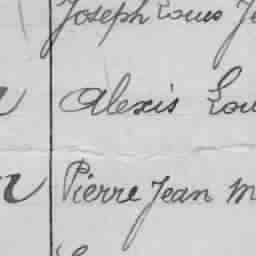 Joseph Louis
Alexis Lou
Pierre Jean M